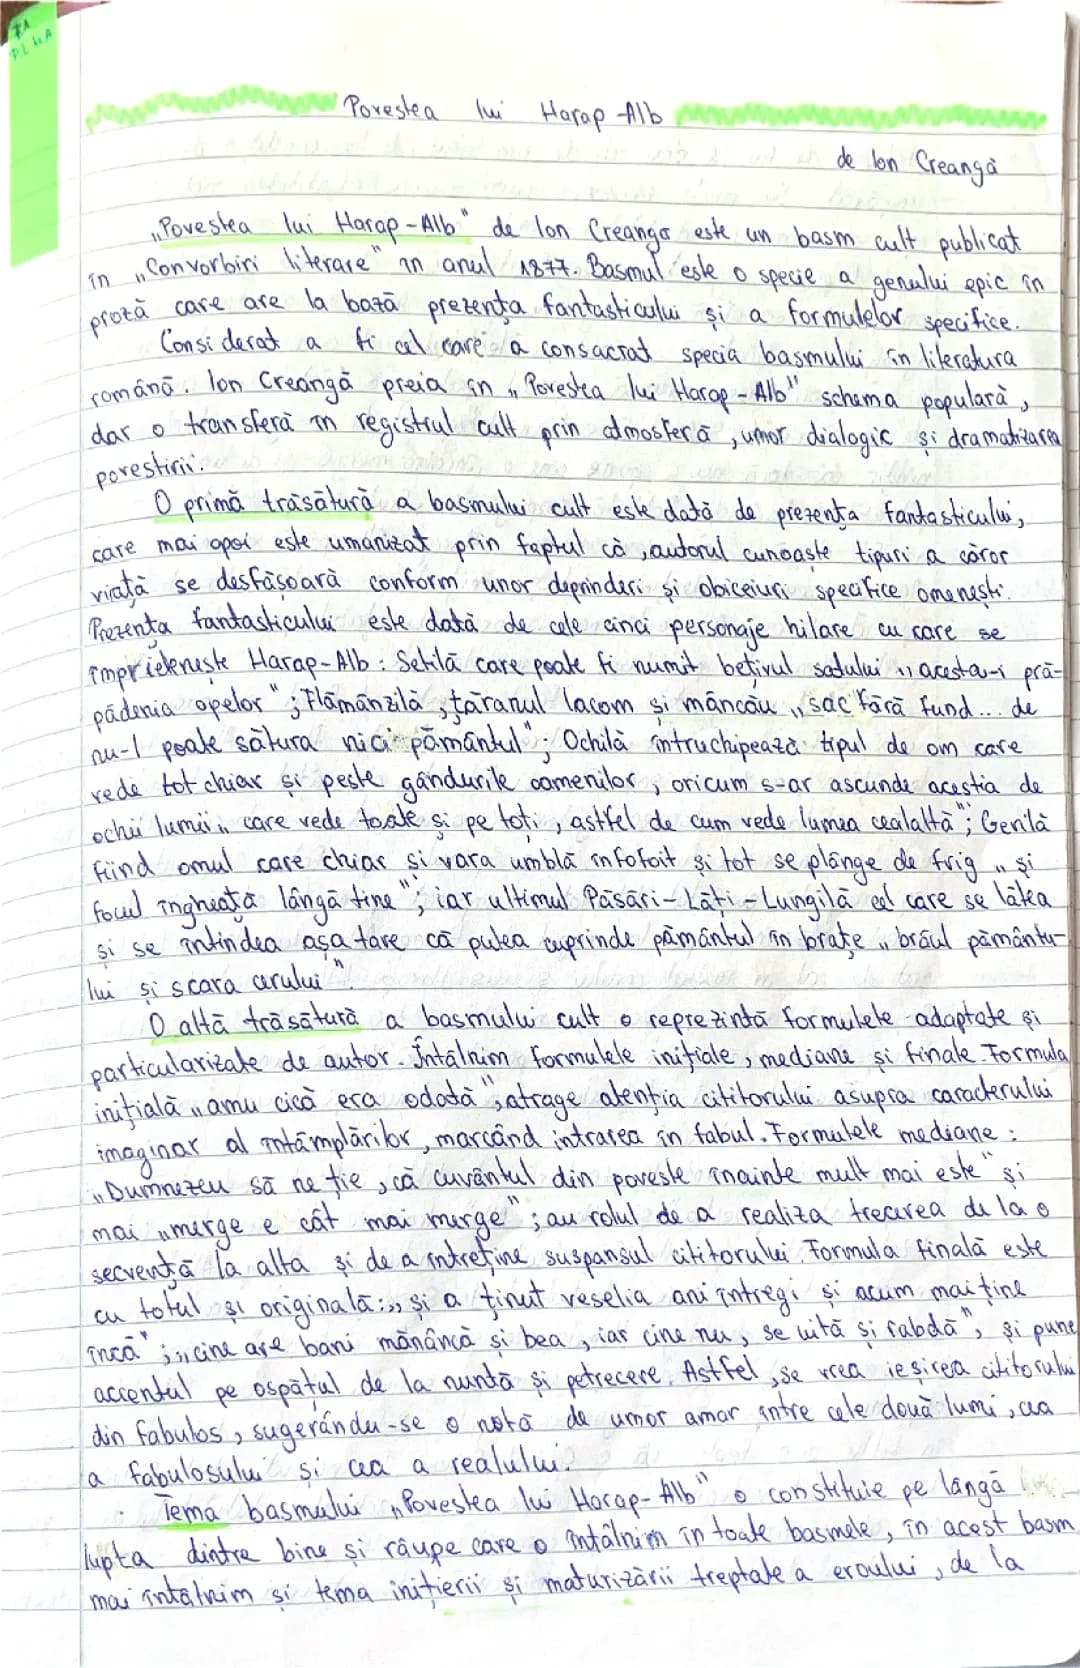 Povestea lui Harap-Alb
de Ion Creangă
„Povestea lui Harap-Alb" de Ion Creangă este un basm cult publicat
în „Convorbiri literare" în anul 1877. Basmul este o specie a genului epic în
proză care are la bază prezența fantasticului și a formulelor specifice.
Considerat a fi cel care a consacrat specia basmului în literatura
română. Ion Creangă preia în „Povestea lui Harap-Alb" schema populară,
dar o transferă în registrul cult prin atmosferă, umor dialogic și dramatizarea
povestirii.
O primă trăsătură a basmului cult este dată de prezența fantasticului,
care mai apoi este umanizat prin faptul că, autorul cunoaște tipuri a căror
viață se desfășoară conform unor deprinderi și obiceiuri specifice omenești.
Prezența fantasticului este dată de cele cinci personaje hilare cu care se
împrietenește Harap-Alb: Setilă care poate fi numit bețivul satului „acesta-i pră-
pădenia apelor"; Flămânzilă, țăranul lacom și mâncău „sac fără fund... de
nu-l poate sătura nici pământul"; Ochilă întruchipează tipul de om care
vede tot chiar și peste gândurile oamenilor, oricum s-ar ascunde aceștia de
ochii lumii „care vede toate și pe toți, astfel de cum vede lumea cealaltă"; Gerilă
fiind omul care chiar și vara umblă înfofoit și tot se plânge de frig „și
focul îngheață lângă tine"; iar ultimul Păsări-Lăți-Lungilă cel care se lățea
și se întindea așa tare că putea cuprinde pământul în brațe „brâul pământu-
lui și scara cerului".
O altă trăsătură a basmului cult o reprezintă formulele adaptate și
particularizate de autor. Întâlnim formulele inițiale, mediane și finale. Formula
inițială „amu cică era odată", atrage atenția cititorului asupra caracterului
imaginar al întâmplărilor, marcând intrarea în fabul. Formulele mediane:
„Dumnezeu să ne ție, că cuvântul din poveste înainte mult mai este" și
mai „merge e cât mai merge"; au rolul de a realiza trecerea de la o
secvență la alta și de a întreține suspansul cititorului. Formula finală este
cu totul și originală: „și a ținut veselia ani întregi și acum mai ține
încă"; „cine are bani mănâncă și bea, iar cine nu, se uită și rabdă", și pune
accentul pe ospățul de la nuntă și petrecere. Astfel, se vrea ieșirea cititorului
din fabulos, sugerându-se o notă de umor amar între cele două lumi, cea
a fabulosului și cea a realului.
Tema basmului „Povestea lui Harap-Alb" o constituie pe lângă
lupta dintre bine și rău, pe care o întâlnim în toate basmele, în acest basm
mai întâlnim și tema inițierii și maturizării treptate a eroului, de la